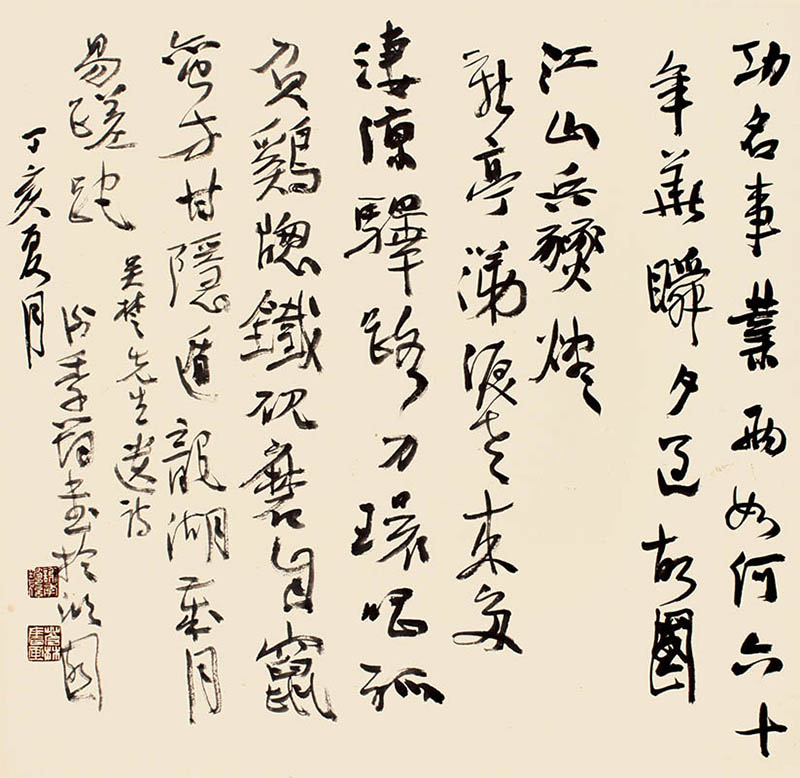 功名事業兩如何六十
年華瞬夕過故國
江山兵燹燼
新亭涕淚老來多
淒涼驛路刀環唱孤
負雞牕鐵硯磨自竄
蠻方甘隱遁龍湖歲月
易蹉跎
吳楚先生遺詩
書於園
丁亥夏月